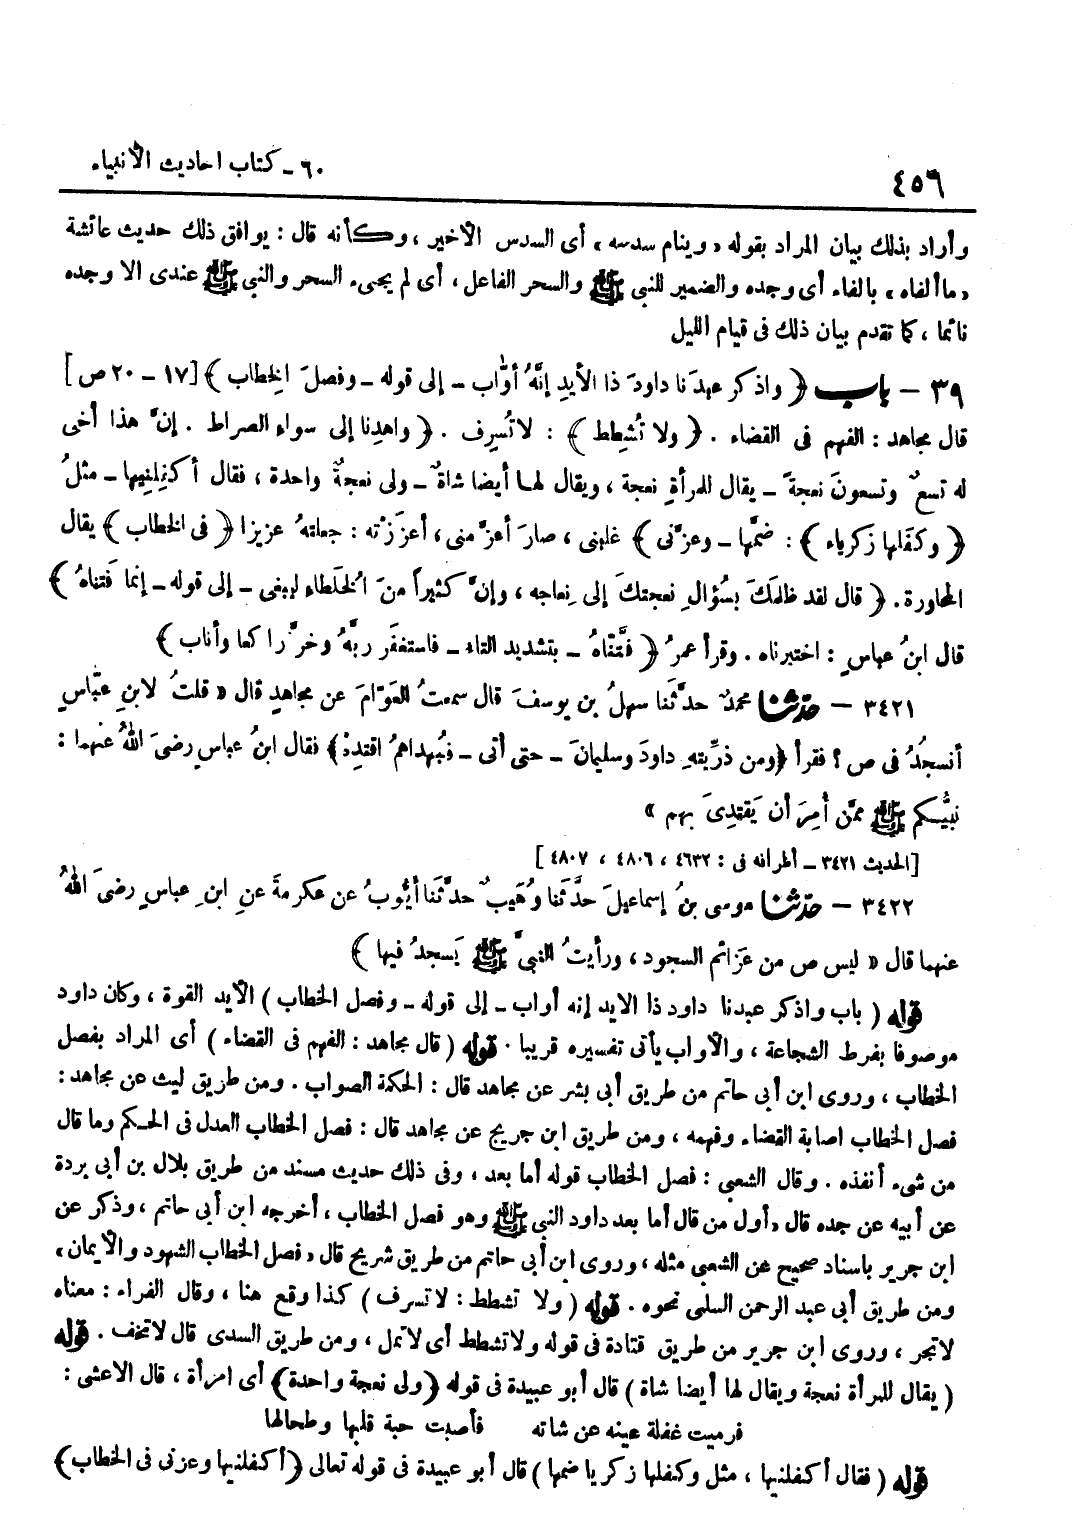 ٤٥٦
٦٠ - كتاب احاديث الأنبياء
وأراد بذلك بيان المراد بقوله « وينام سدسه » أى السدس الأخير ، وكأنه قال : يوافق ذلك حديث عائشة
« ما ألفاه » بالفاء أى وجده والضمير للنبى ﷺ والسحر الفاعل ، أى لم يجىء السحر والنبى ﷺ عندى الا وجده
نائما ، كما تقدم بيان ذلك فى قيام الليل
٣٩ - باب ﴿ واذكر عبدَنا داودَ ذا الأيدِ إنَّهُ أوَّاب - إلى قوله - وفصلَ الخِطاب ﴾ [ ١٧ - ٢٠ ص ]
قال مجاهد : الفهم فى القضاء . ﴿ ولا تُشطِط ﴾ : لا تُسرِف . ﴿ واهدِنا إلى سواءِ الصراط . إنَّ هذا أخى
له تسعٌ وتسعونَ نعجةً - يقال للمرأةِ نعجة ، ويقال لها أيضا شاةٌ - ولى نعجةٌ واحدة ، فقال أكفِلنِيها - مثلُ
﴿ وكفَلها زكرياء ﴾ : ضمَّها - وعزَّنى ﴾ غلبنى ، صارَ أعزَّ منى ، أعزَزْته : جعلتهُ عزيزا ﴿ فى الخطاب ﴾ يقال
المحاورة . ﴿ قال لقد ظلمَكَ بسُؤالِ نعجتكَ إلى نِعاجه ، وإنَّ كثيراً منَ الخُلَطاءِ ليبغى - إلى قوله - إنما فَتناهُ ﴾
قال ابنُ عباسٍ : اختبرناه . وقرأ عمرُ ﴿ فتَّنّاهُ - بتشديد التاء - فاستغفَر ربَّهُ وخرَّ راكعا وأناب ﴾
٣٤٢١ - حدّثنا محمدٌ حدَّثَنا سهلُ بن يوسفَ قال سمعتُ العَوّامَ عن مجاهدٍ قال « قلتُ لابنِ عبّاسٍ
أنسجُدُ فى ص ؟ فقرأ ﴿ ومن ذرِّيتهِ داودَ وسليمانَ - حتى أتى - فبُهداهمُ اقتدِهْ ﴾ فقال ابنُ عباسٍ رضىَ اللهُ عنهما :
نبيُّكم ﷺ ممَّن أُمِرَ أن يَقتدِىَ بهم »
[ الحديث ٣٤٢١ - أطرافه فى : ٤٦٣٢ ، ٤٨٠٦ ، ٤٨٠٧ ]
٣٤٢٢ - حدّثنا موسى بنُ إسماعيلَ حدَّثَنا وُهَيبٌ حدَّثَنا أيُّوبُ عن عِكرمةَ عنِ ابنِ عباسٍ رضىَ اللهُ
عنهما قال « ليس ص من عَزائم السجود ، ورأيتُ النبىَّ ﷺ يَسجدُ فيها ﴾
قوله ( باب واذكر عبدنا داود ذا الايد إنه أواب - إلى قوله - وفصل الخطاب ) الأيد القوة ، وكان داود
موصوفا بفرط الشجاعة ، والأواب يأتى تفسيره قريبا . قوله ( قال مجاهد : الفهم فى القضاء ) أى المراد بفصل
الخطاب ، وروى ابن أبى حاتم من طريق أبى بشر عن مجاهد قال : الحكمة الصواب . ومن طريق ليث عن مجاهد :
فصل الخطاب اصابة القضاء وفهمه ، ومن طريق ابن جريج عن مجاهد قال : فصل الخطاب العدل فى الحكم وما قال
من شىء أنفذه . وقال الشعبى : فصل الخطاب قوله أما بعد ، وفى ذلك حديث مسند من طريق بلال بن أبى بردة
عن أبيه عن جده قال « أول من قال أما بعد داود النبى ﷺ وهو فصل الخطاب ، أخرجه ابن أبى حاتم ، وذكر عن
ابن جرير باسناد صحيح عن الشعبى مثله ، وروى ابن أبى حاتم من طريق شريح قال « فصل الخطاب الشهود والأيمان »
ومن طريق أبى عبد الرحمن السلمى نحوه . قوله ( ولا تشطط : لا تسرف ) كذا وقع هنا ، وقال الفراء : معناه
لا تجر ، وروى ابن جرير من طريق قتادة فى قوله ولا تشطط أى لا تمل ، ومن طريق السدى قال لا تخف . قوله
( يقال للمرأة نعجة ويقال لها أيضا شاة ) قال أبو عبيدة فى قوله ﴿ ولى نعجة واحدة ﴾ أى امرأة ، قال الاعشى :
فرميت غفلة عينه عن شاته فأصبت حبة قلبها وطحالها
قوله ( فقال أكفلنيها ، مثل وكفلها زكريا ضمها ) قال أبو عبيدة فى قوله تعالى ﴿ أكفلنيها وعزنى فى الخطاب ﴾